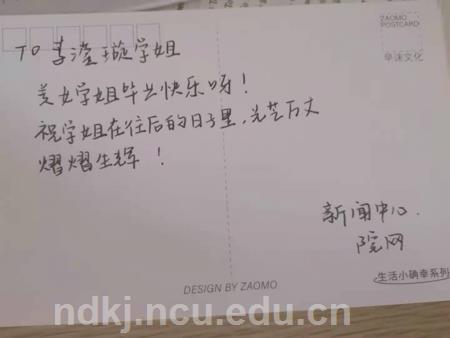 ZAOMO
POSTCARD
早沫文化
TO 李滢璇学姐
美女学姐毕业快乐呀！
祝学姐在往后的日子里，光芒万丈
熠熠生辉！
新闻中心
院网
生活小确幸系列
DESIGN BY ZAOMO
ndkj.ncu.edu.cn